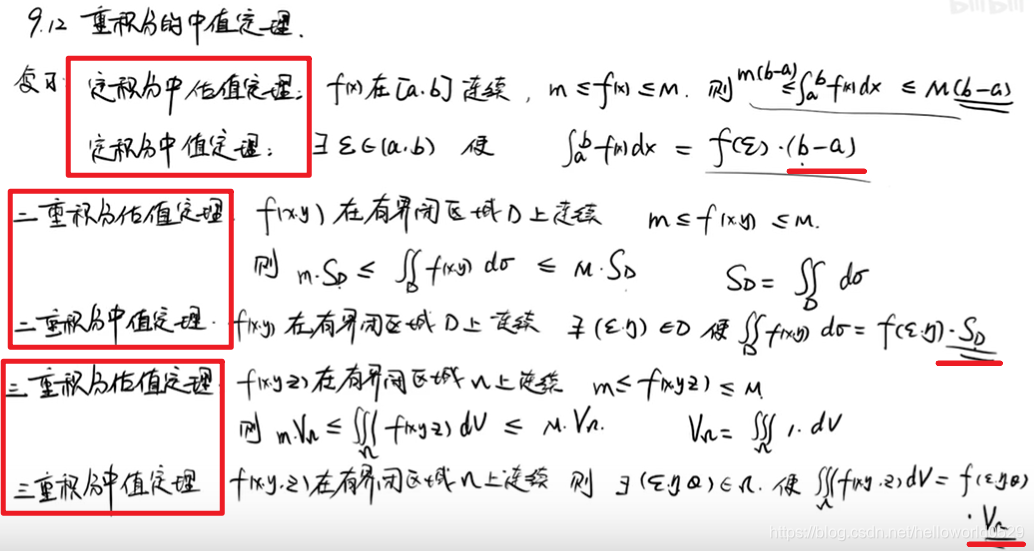 9.12 重积分的中值定理.
bilibili
复习: 定积分中估值定理: f(x)在[a.b]连续, m≤f(x)≤M. 则 m(b-a)≤∫ₐᵇf(x)dx ≤ M(b-a)
定积分中值定理: ∃ξ∈(a.b) 使 ∫ₐᵇf(x)dx = f(ξ)·(b-a)
二重积分估值定理. f(x.y)在有界闭区域D上连续 m≤f(x.y)≤M.
则 m·S_D ≤ ∬_D f(x,y) dσ ≤ M·S_D S_D = ∬_D dσ
二重积分中值定理. f(x,y)在有界闭区域D上连续 ∃(ξ.η)∈D 使∬_D f(x,y)dσ = f(ξ.η)·S_D
三重积分估值定理. f(x,y,z)在有界闭区域Ω上连续 m≤f(x,y,z)≤M
则 m.V_Ω ≤ ∭_Ω f(x,y,z)dV ≤ M.V_Ω. V_Ω = ∭_Ω 1.dV
三重积分中值定理 f(x,y,z)在有界闭区域Ω上连续 则 ∃(ξ,η,θ)∈Ω. 使∭_Ω f(x,y,z)dV = f(ξ,η,θ)
·V_Ω
https://blog.csdn.net/helloworld0529